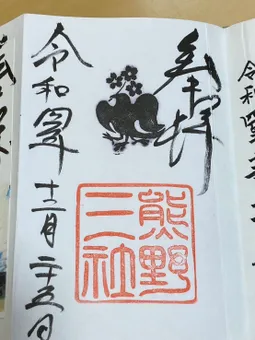 令和四年十
奉拝
熊野
三社
令和四年
十二月二十五日